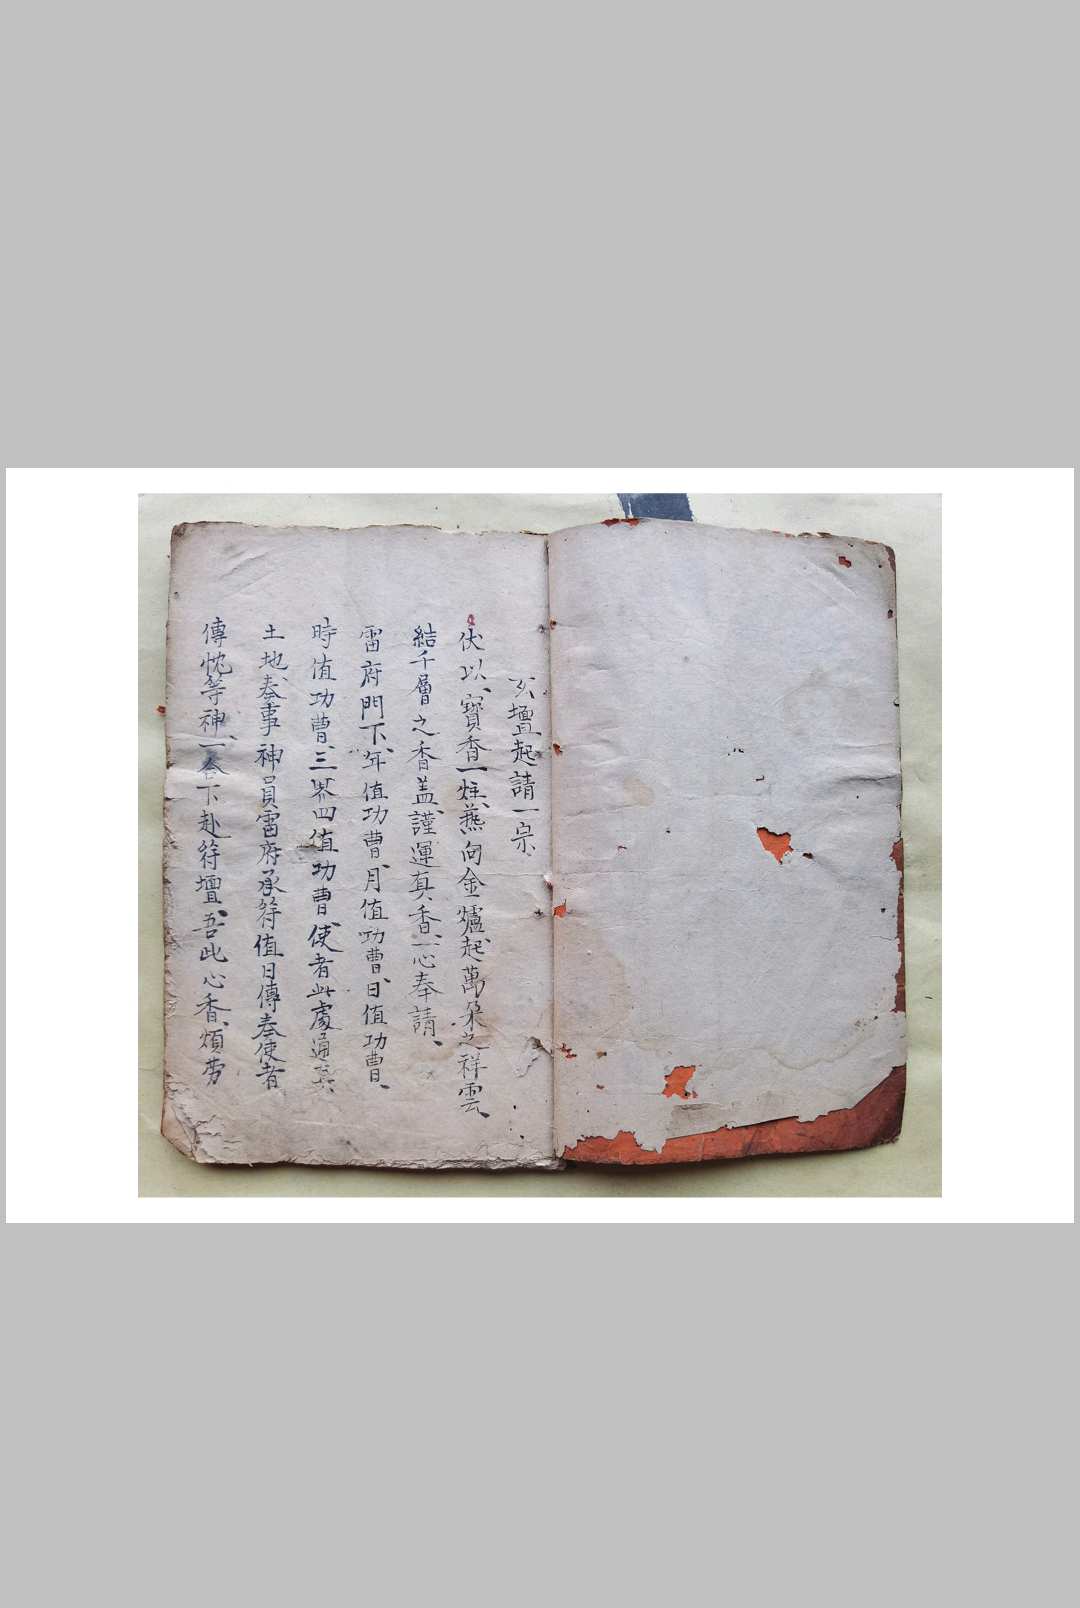 壇起請一宗
伏以、寶香一炷、爇向金爐、起萬朵之祥雲、
結千層之香盖、謹運真香、一心奉請、
雷府門下、年值功曹、月值功曹、日值功曹、
時值功曹、三界四值功曹、使者此處通
土地、奏事神員雷府承符值日傳奏使者
傳忱等神、一命下赴符壇、吾此心香、煩劳